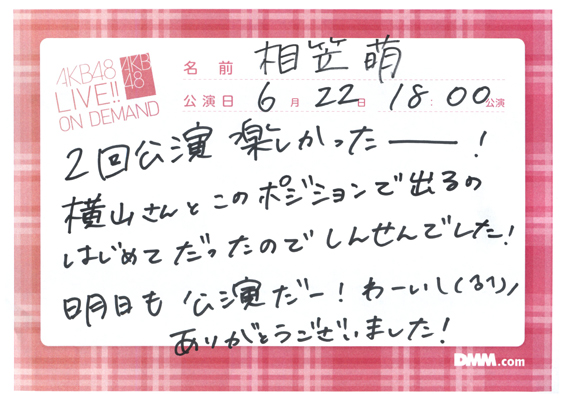 AKB48
LIVE!!
ON DEMAND
AKB
48
名前 相笠萌
公演日 6月22日 18:00公演
2回公演 楽しかったー!
横山さんとこのポジションで出るの
はじめてだったのでしんせんでした!
明日も公演だー!わーいし(る?)ノ
ありがとうございました!
DMM.com